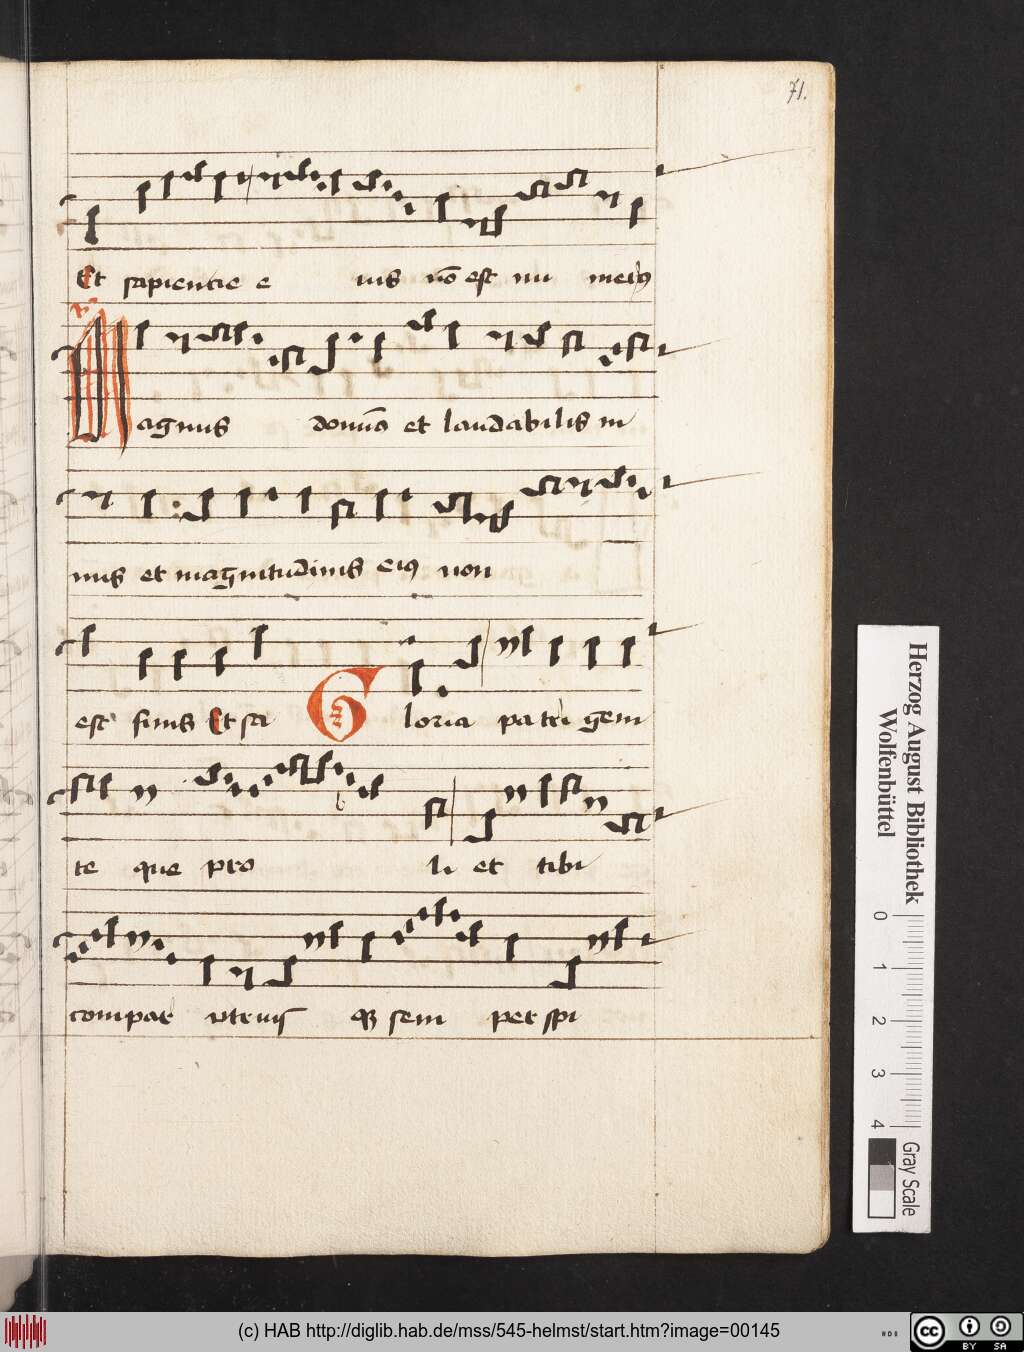 71.
Et sapientie e ius nō est nu merꝯ
V
Magnus domnꝰ et laudabilis ni
mis et magnitudinis eiꝯ non
est finis Et sa Gloria patri geni
te que pro li et tibi
compar utrius qꝫ sem per spi
Herzog August Bibliothek
Wolfenbüttel
0 1 2 3 4
Gray Scale
(c) HAB http://diglib.hab.de/mss/545-helmst/start.htm?image=00145
HAB
cc BY SA